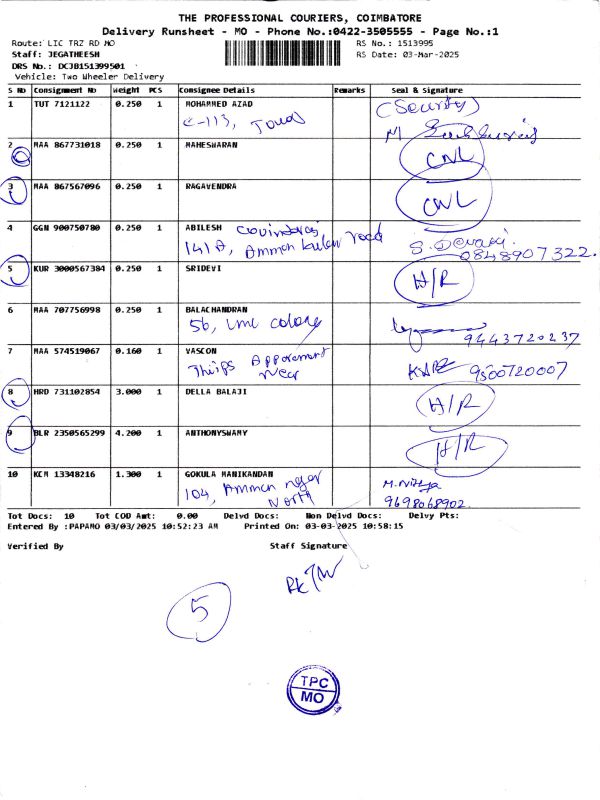 THE PROFESSIONAL COURIERS, COIMBATORE
Delivery Runsheet - MO - Phone No.:0422-3505555 - Page No.:1
Route: LIC TRZ RD MO
RS No.: 1513995
Staff: JEGATHEESH
RS Date: 03-Mar-2025
DRS No.: DCJB151399501
Vehicle: Two Wheeler Delivery
S No Consignment No Weight PCS Consignee Details Remarks Seal & Signature
1 TUT 7121122 0.250 1 MOHAMMED AZAD (Security)
C-113,
2 MAA 867731018 0.250 1 MAHESWARAN CNL
3 MAA 867567096 0.250 1 RAGAVENDRA CNL
4 GGN 900750780 0.250 1 ABILESH Govindaraj
141 A, Amman kulam road S. Devaki.
0848907322.
5 KUR 3000567384 0.250 1 SRIDEVI H/R
6 MAA 707756998 0.250 1 BALACHANDRAN
56, LML colony 9443720237
7 MAA 574519067 0.160 1 VASCON
Thirps Apporement 9500720007
near
8 HRD 731102854 3.000 1 DELLA BALAJI H/R
9 BLR 2350565299 4.200 1 ANTHONYSWAMY H/R
10 KCM 13348216 1.300 1 GOKULA MANIKANDAN
104, Amman nagar M. Nithya
North 9698068902
Tot Docs: 10 Tot COD Amt: 0.00 Delvd Docs: Non Delvd Docs: Delvy Pts:
Entered By :PAPAMO 03/03/2025 10:52:23 AM Printed On: 03-03-2025 10:58:15
Verified By Staff Signature
5
TPC
MO